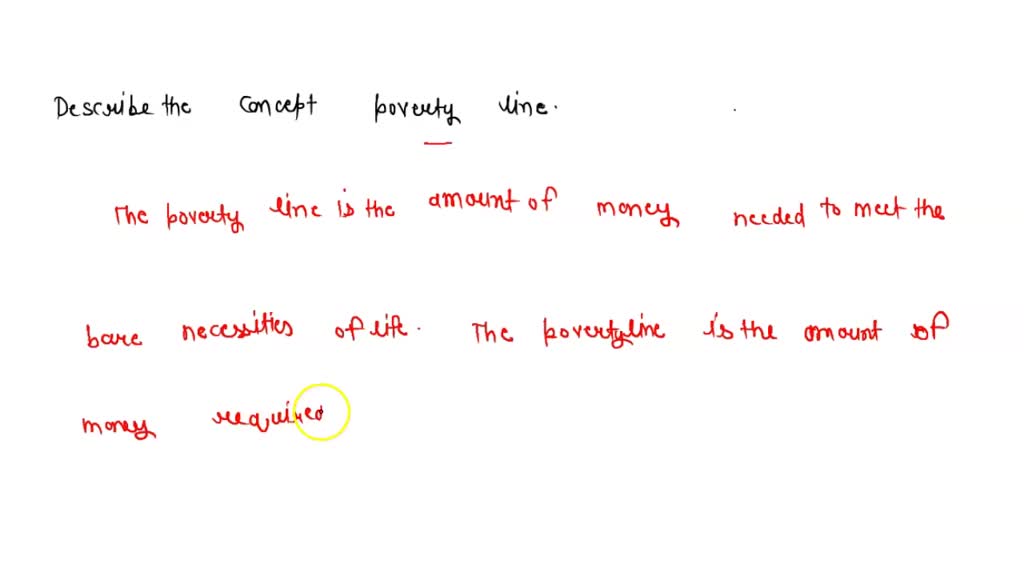 Describe the concept poverty line.
The poverty line is the amount of money needed to meet the
bare necessities of life. The poverty line is the amount of
money required